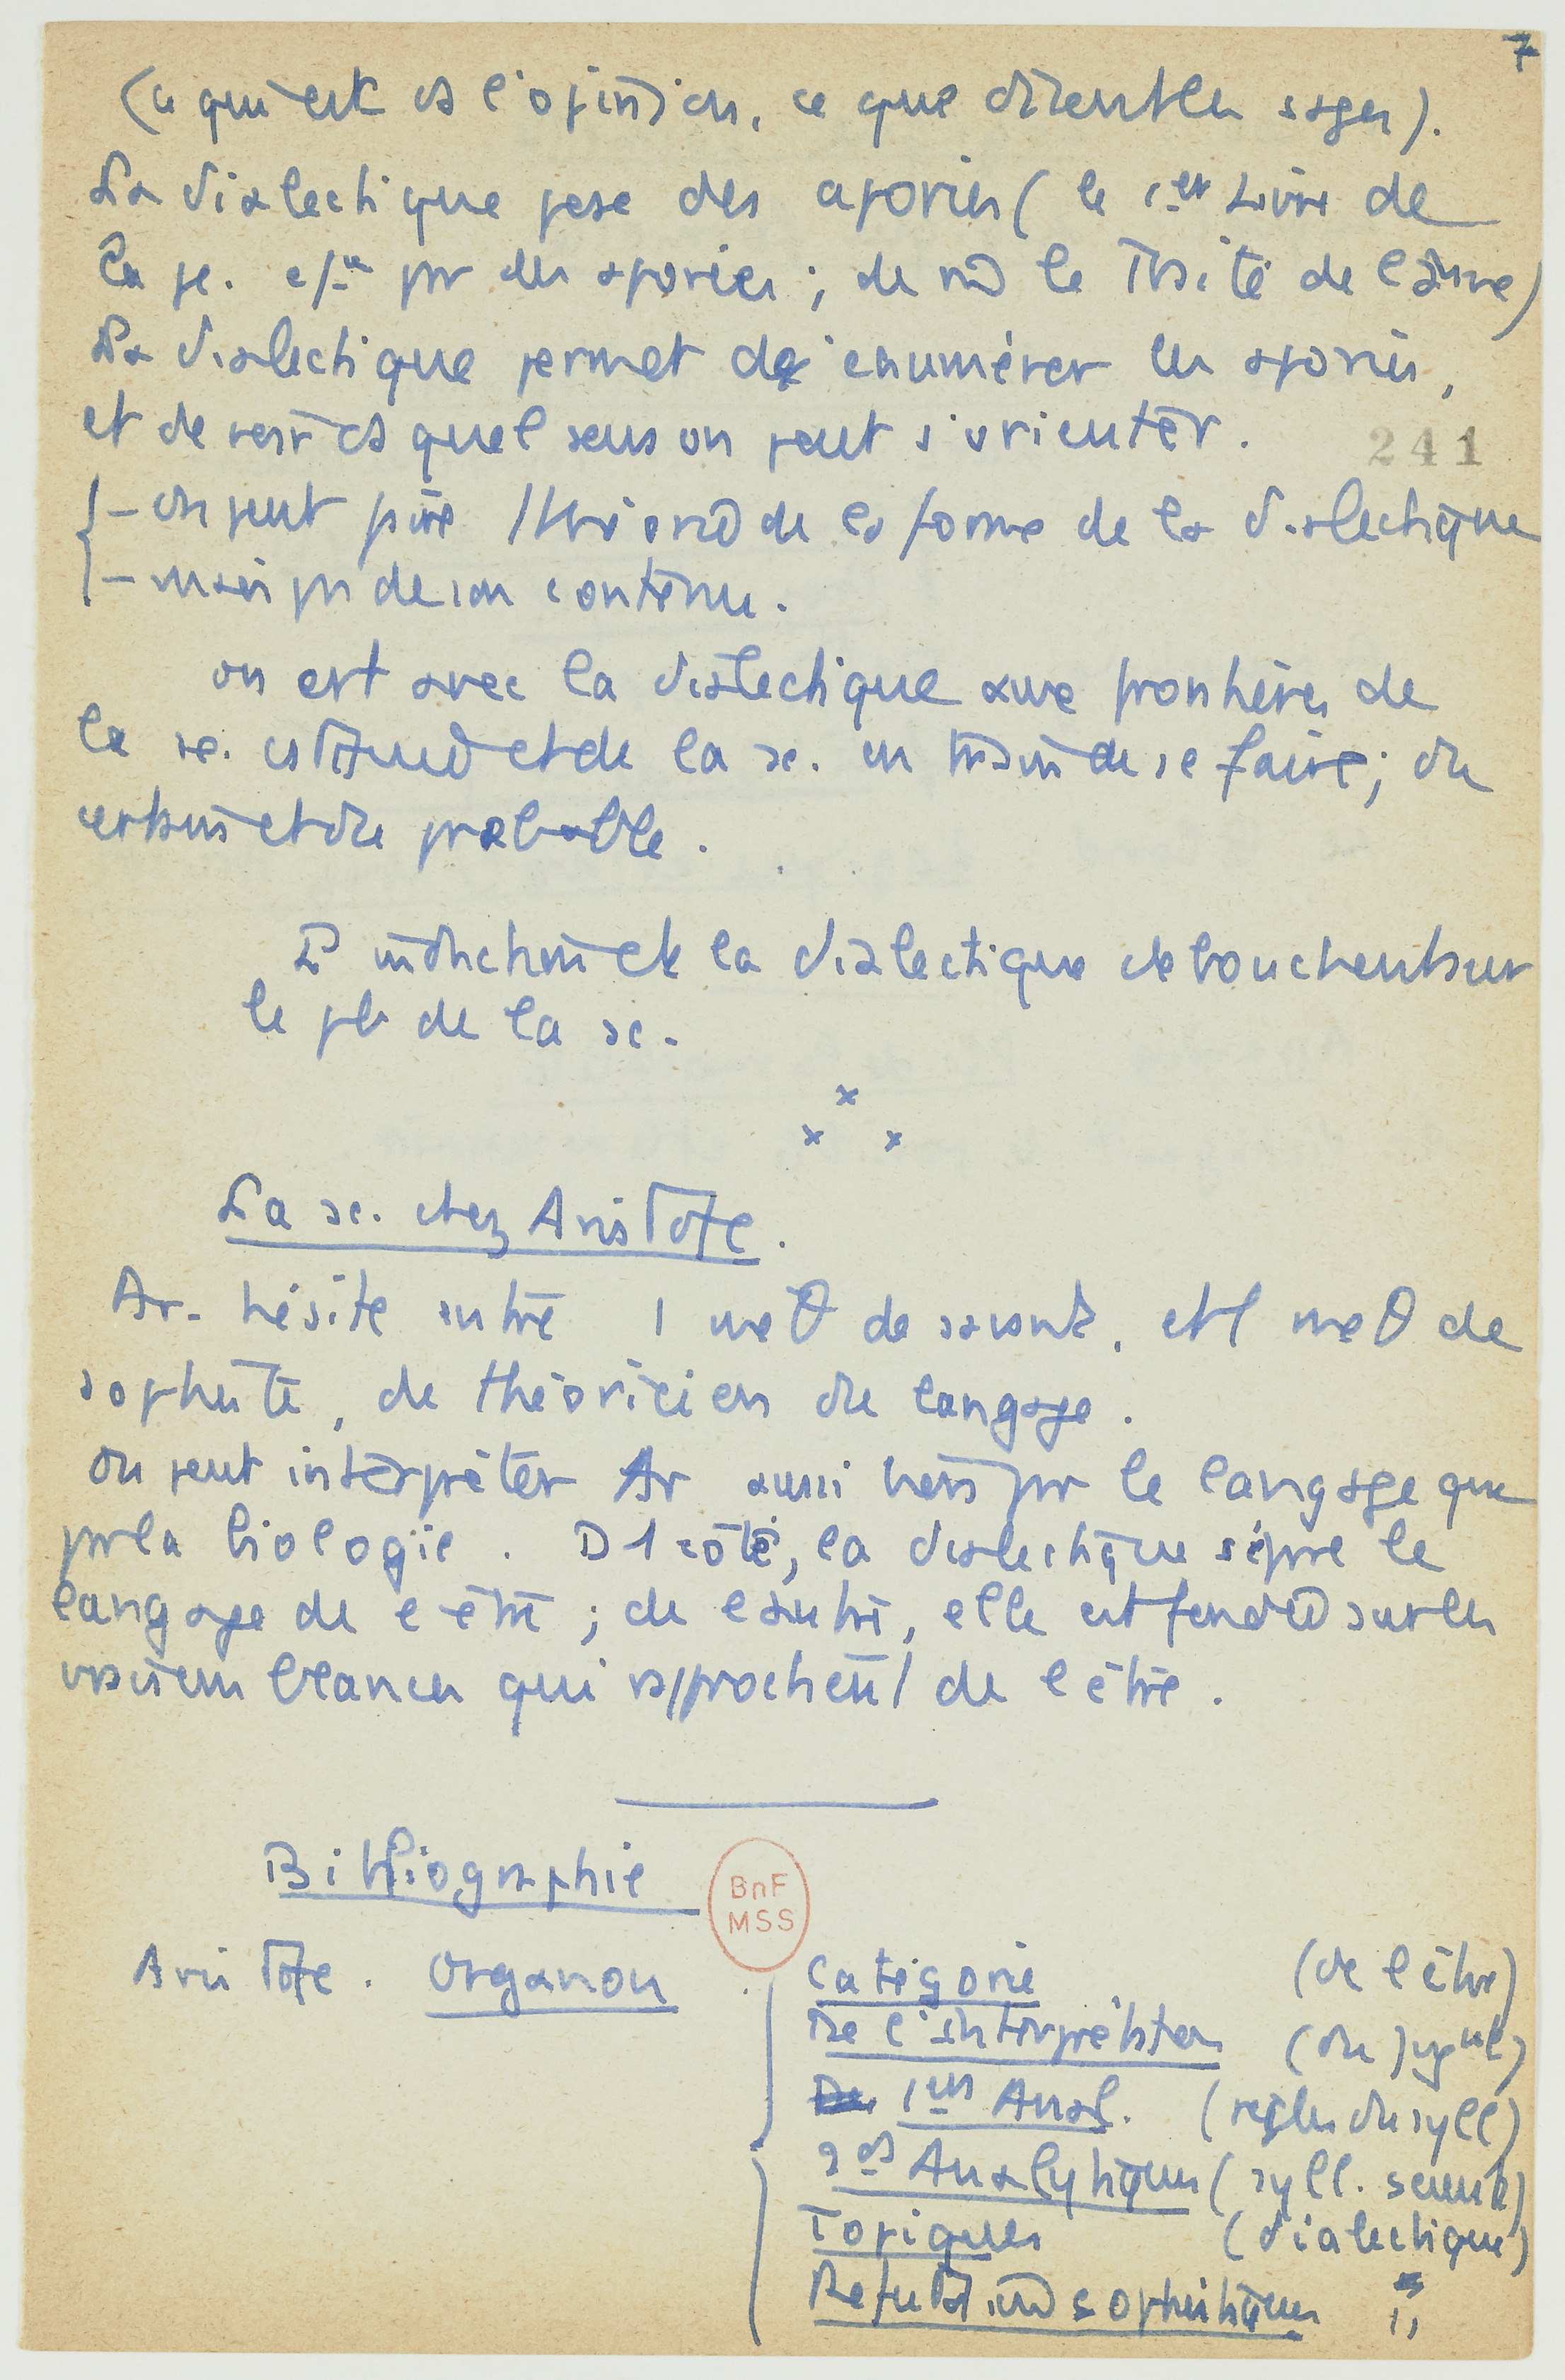 7
(ce qui est ds l'opinion, ce que disent les sages).
La dialectique pose des apories (le 1er Livre de
la φ. c/ce par des apories ; de m̂ le Traité de l'âme)
La dialectique permet de énumérer les apories,
et de voir ds quel sens on peut s'orienter.
241
– on peut faire 1 théorie de la forme de la dialectique
– mais pas de son contenu.
on est avec la dialectique aux frontières de
la sc. constituée et de la sc. en train de se faire ; du
certain et du probable.
L'induction et la dialectique débouchent sur
le pb de la sc.
x
x x
La sc. chez Aristote.
Ar. hésite entre 1 méθ de savant, et 1 méθ de
sophiste, de théoricien du langage.
On peut interpréter Ar aussi bien par le langage que
par la biologie. D'1 côté, la dialectique sépare le
langage de l'être ; de l'autre, elle est fondée sur les
vraisemblances qui rapprochent de l'être.
Bibliographie
BnF
MSS
Aristote. Organon
Catégorie (de l'être)
De l'interprétation (du signe)
1ers Anal. (règles du syll)
2ds Analytiques (syll. scientif)
Topiques (dialectique)
Réfutations sophistiques "